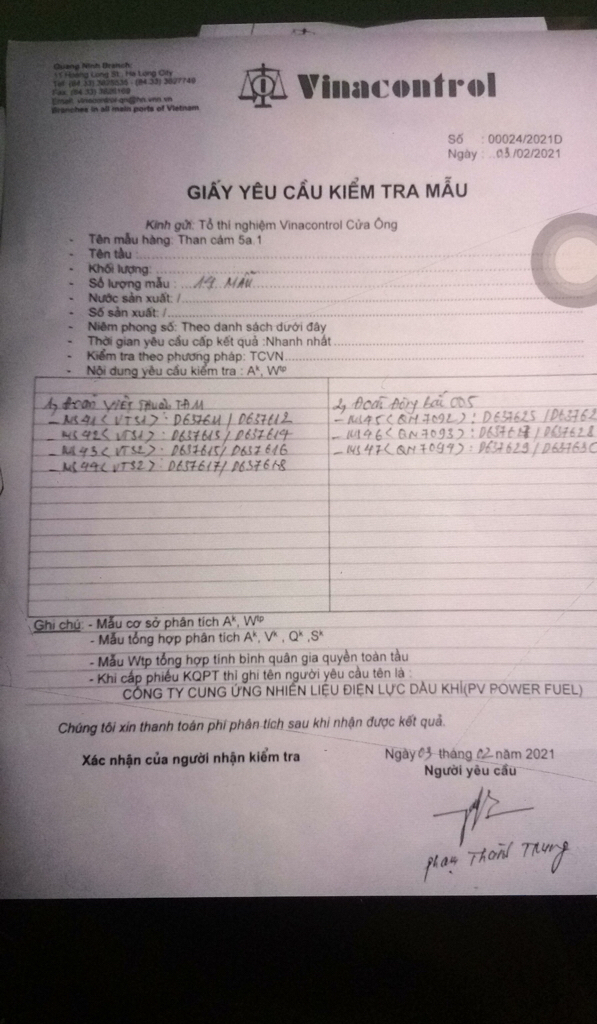 Quang Ninh Branch:
11 Hoang Long St., Ha Long City
Tel: (84.33)
Fax: (84.33)
Email:
Branches in all main ports of Vietnam
Vinacontrol
Số : 00024/2021D
Ngày : ..03./02/2021
GIẤY YÊU CẦU KIỂM TRA MẪU
Kính gửi: Tổ thí nghiệm Vinacontrol Cửa Ông
- Tên mẫu hàng: Than cám 5a.1
- Tên tàu :
- Khối lượng:
- Số lượng mẫu : 19 MẪU
- Nước sản xuất: /
- Số sản xuất: /
- Niêm phong số: Theo danh sách dưới đây
- Thời gian yêu cầu cấp kết quả :Nhanh nhất
- Kiểm tra theo phương pháp: TCVN
- Nội dung yêu cầu kiểm tra : Aᵏ, Wᵗᵖ
1, Đoàn VIỆT THUẬN
- M541 (VTS1) : D657611 / D657612
- M542 (VTS1) : D657613 / D657614
- M543 (VTS2) : D657615 / D657616
- M544 (VTS2) : D657617 / D657618
2, Đoàn Đông Bắc
- M545 (QN7092) : D657625 /
- M546 (QN7093) : / D657628
- M547 (QN7094) : D657629 /
Ghi chú: - Mẫu cơ sở phân tích Aᵏ, Wᵗᵖ
- Mẫu tổng hợp phân tích Aᵏ, Vᵏ , Qᵏ ,Sᵏ
- Mẫu Wtp tổng hợp tính bình quân gia quyền toàn tàu
- Khi cấp phiếu KQPT thì ghi tên người yêu cầu tên là :
CÔNG TY CUNG ỨNG NHIÊN LIỆU ĐIỆN LỰC DẦU KHÍ(PV POWER FUEL)
Chúng tôi xin thanh toán phí phân tích sau khi nhận được kết quả.
Ngày 03 tháng 02 năm 2021
Xác nhận của người nhận kiểm tra
Người yêu cầu
Phạm Thành Trung